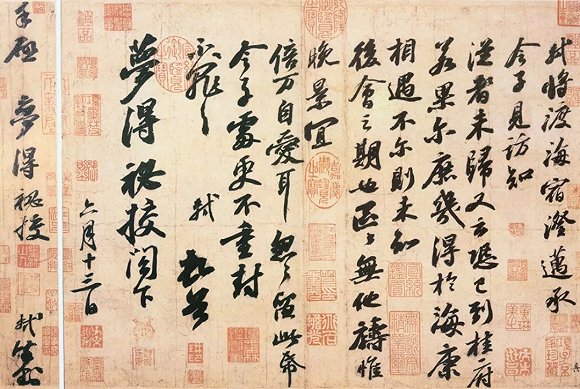 軾將渡海宿澄邁承
令子見訪知
從者未歸又云恐已到桂府
若果尔庶幾得於海康
相遇不尔則未知
後會之期也區々無他禱惟
晚景宜
倍万自愛耳忽々留此帋
令子處更不重封
不罪々 軾 頓首
夢得祕校閣下
六月十三日
手啓 夢得祕校 軾封